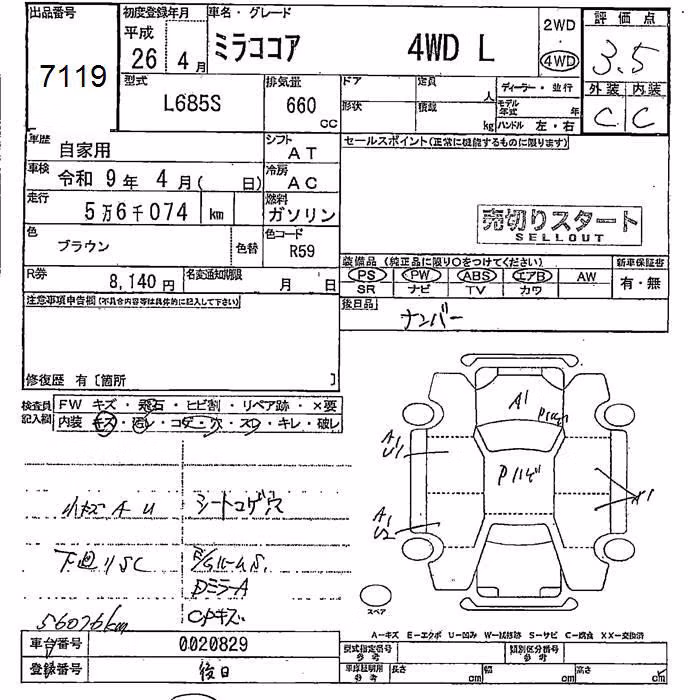 出品番号
7119
初度登録年月
平成
26 年 4 月
車名・グレード
ミラココア 4WD L
2WD
4WD
評価点
3.5
外装 内装
C C
型式
L685S
排気量
660
CC
ドア
形状
定員
人
積載
kg
ディーラー・並行
モデル年式 年
ハンドル 左・右
車歴
自家用
シフト
AT
車検
令和 9年 4月( 日)
冷房
AC
走行
5万6千074 km
燃料
ガソリン
色
ブラウン
色替
色コード
R59
R券
8,140円
名変通知期限
月 日
セールスポイント(正常に機能するものに限ります)
売切りスタート
SELLOUT
装備品 (純正品に限り○をつけてください)
PS PW ABS エアB AW
SR ナビ TV カワ
新車保証書
有・無
後日品
ナンバー
注意事項申告欄(不具合内容等は具体的に記入して下さい)
修復歴 有〔箇所 〕
検査員記入欄
FW キズ・飛石・ヒビ割・リペア跡・×要
内装 キズ・汚レ・コゲ・穴・スレ・キレ・破レ
小キズ A U
シートコゲ穴
下廻りSC
DミラーA
CPキズ
56076km
A1
A1
U1
A1
U2
A1
Pハゲ
スペア
A－キズ E－エクボ U－凹み W－試修跡 S－サビ C－腐食 XX－交換済
車台番号
0020829
登録番号
後日
型式指定番号
参考
類別区分番号
参考
車庫証明用
参考
長さ cm
幅 cm
高さ cm